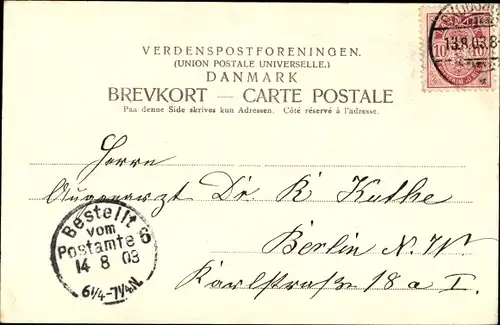 VERDENSPOSTFORENINGEN.
(UNION POSTALE UNIVERSELLE.)
DANMARK
BREVKORT — CARTE POSTALE
Paa denne Side skrives kun Adressen. Côté réservé à l'adresse.
10 10
13.8.03.8
Herrn
Augenarzt Dr. R Kuthe
Berlin N.W.
Karlstraße 18 a I.
Bestellt
vom
Postamte 6
14 8 03
6¼-7¼N.